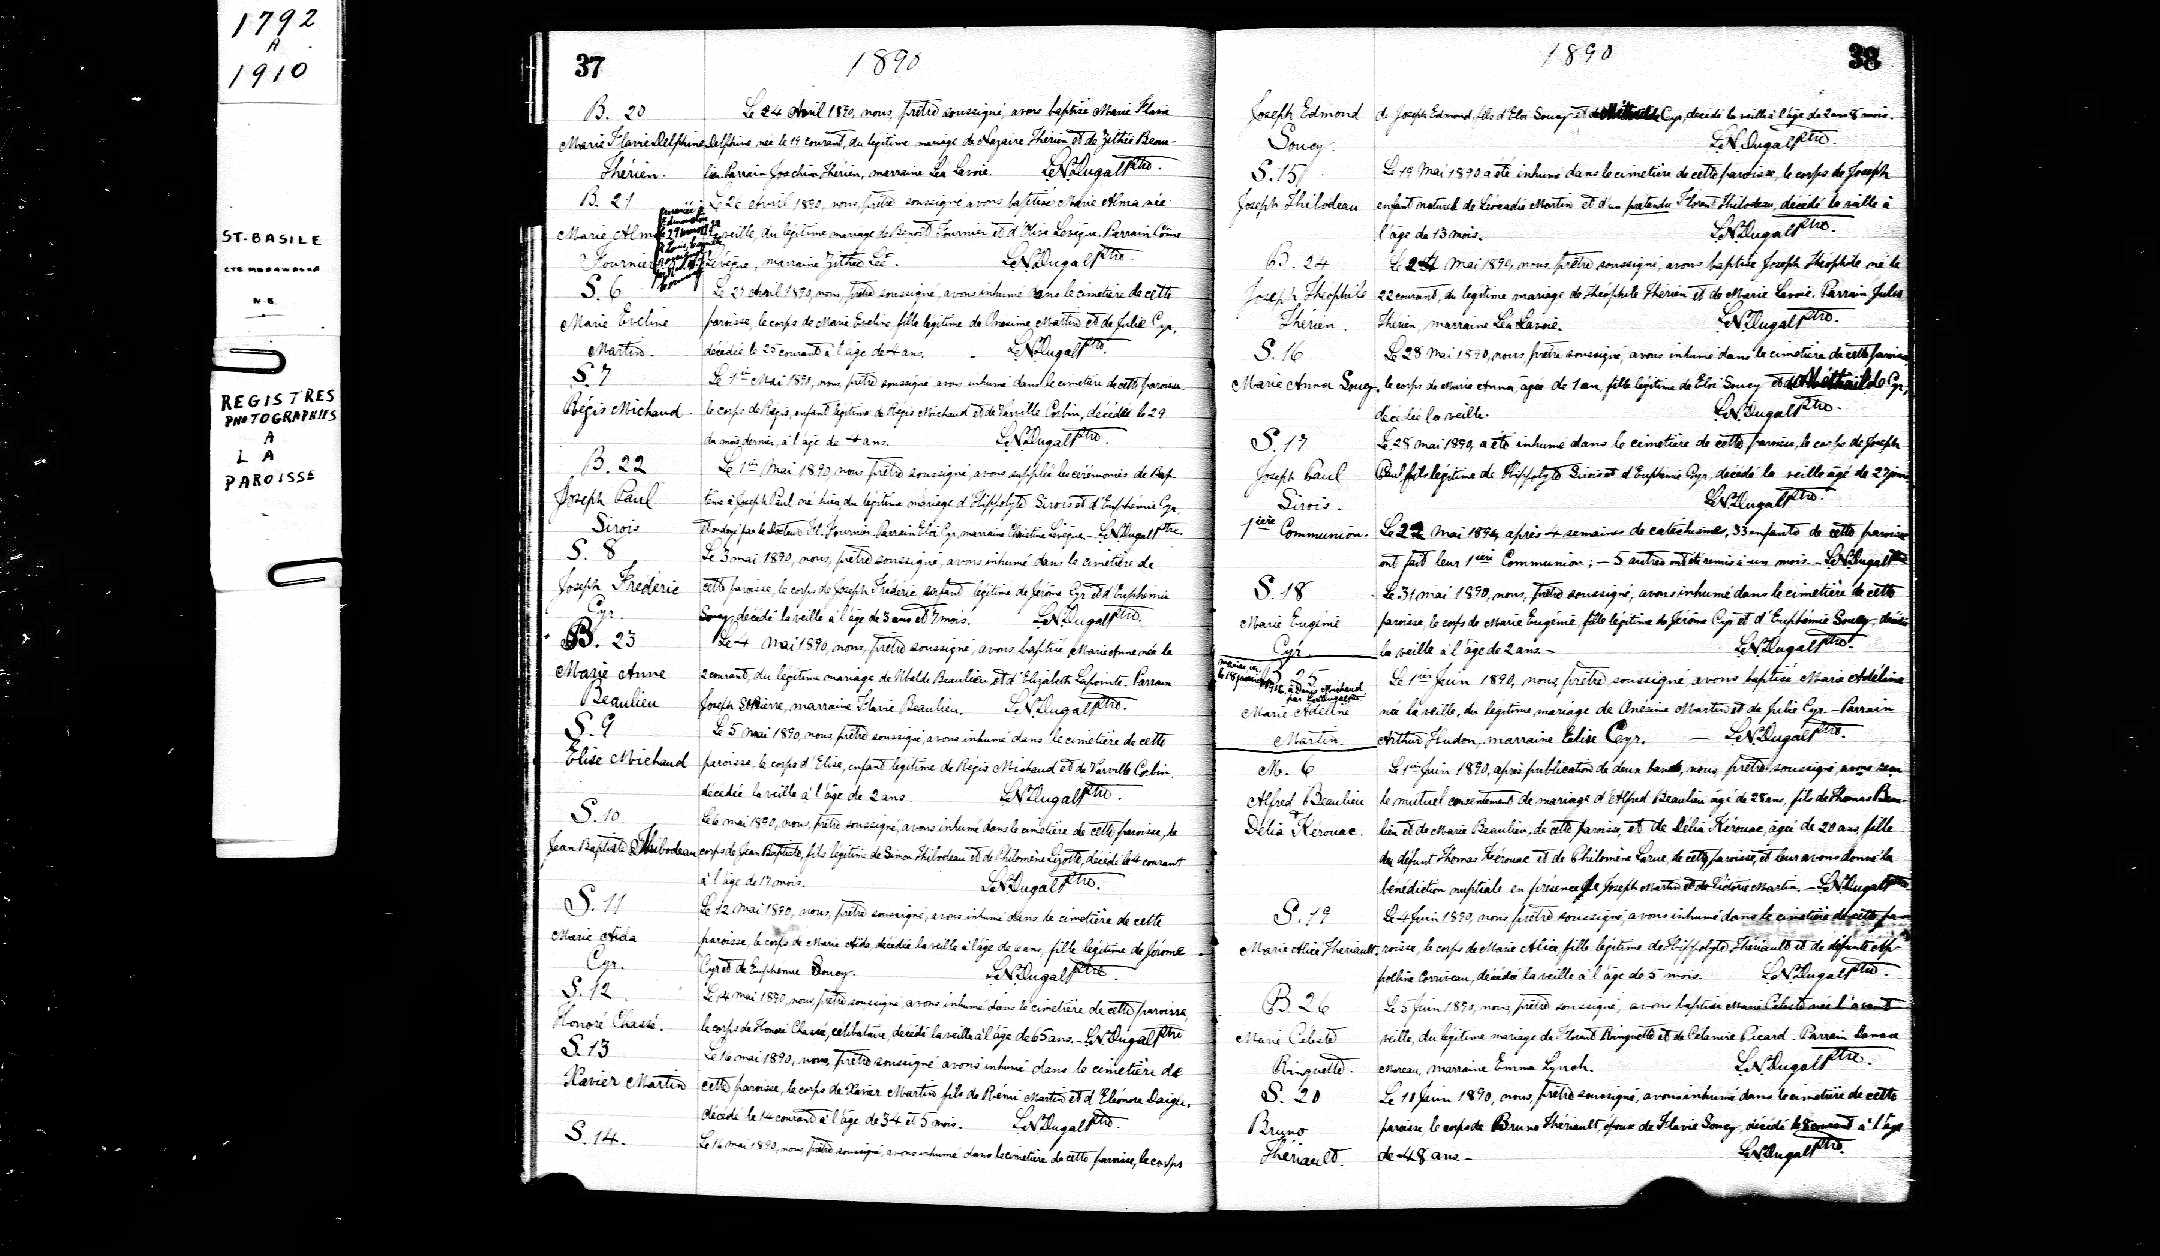 1792
A
1910
ST-BASILE
CTE MADAWASKA
N.B.
REGISTRES
PHOTOGRAPHIES
A
LA
PAROISSE
37
1890
B. 20
Le 24 Avril 1890, nous, prêtre soussigné, avons baptisé Marie Flavie
Marie Flavie Delphine
Delphine, née le 19 courant, du légitime mariage de Nazaire Thérien et de Zithée Beau-
Thérien.
lieu. Parrain Joachim Thérien, marraine Léa Lavoie. Ls N. Dugal Ptre.
B. 21
Le 26 Avril 1890, nous, prêtre soussigné avons baptisé Marie Alma née
Marie Alma
la veille, du légitime mariage de Benoît Fournier et d'Elise Levêque. Parrain Côme
Fournier
Levêque, marraine Zithée Lee. Ls N. Dugal Ptre.
S. 6
Le 27 Avril 1890, nous, prêtre soussigné, avons inhumé dans le cimetière de cette
Marie Eveline
paroisse, le corps de Marie Eveline, fille légitime de Onesime Martin et de Julie Cyr,
Martin.
décédée le 25 courant à l'âge de 4 ans. Ls N. Dugal Ptre.
S. 7
Le 1er Mai 1890, nous, prêtre soussigné avons inhumé dans le cimetière de cette paroisse
Régis Michaud.
le corps de Régis, enfant légitime de Régis Michaud et de Varville Corbin, décédée le 29
du mois dernier, à l'âge de 4 ans. Ls N. Dugal Ptre.
B. 22
Le 1er Mai 1890 nous prêtre soussigné, avons supplée les cérémonies de Bap-
Joseph Paul
tême à Joseph Paul né hier, du légitime mariage d'Hippolyte Sirois et d'Euphémie Cyr,
Sirois
et ondoyé par le Docteur Fl. Fournier. Parrain Eloi Cyr, marraine Christine Levêque. Ls N. Dugal Ptre.
S. 8
Le 3 mai 1890, nous, prêtre soussigné, avons inhumé dans le cimetière de
Joseph Fréderic
cette paroisse, le corps de Joseph Fréderic, enfant légitime de Jérôme Cyr et d'Euphemie
Cyr.
Soucy, décédé la veille à l'âge de 3 ans et 7 mois. Ls N. Dugal Ptre.
B. 23
Le 4 Mai 1890, nous, prêtre soussigné, avons baptisé Marie Anne née le
Marie Anne
2 courant, du légitime mariage de Ubalde Beaulieu et d'Elizabeth Lapointe. Parrain
Beaulieu
Joseph St Pierre, marraine Flavie Beaulieu. Ls N. Dugal Ptre.
S. 9
Le 5 mai 1890, nous prêtre soussigné, avons inhumé dans le cimetière de cette
Elise Michaud
paroisse, le corps d'Elise, enfant légitime de Régis Michaud et de Varville Corbin,
décédée la veille à l'âge de 2 ans Ls N. Dugal Ptre.
S. 10
Le 6 mai 1890, nous, prêtre soussigné, avons inhumé dans le cimetière de cette paroisse, le
Jean Baptiste Thibodeau
corps de Jean Baptiste, fils légitime de Simon Thibodeau et de Philomène Lizotte, décédé le 4 courant
à l'âge de 17 mois. Ls N. Dugal Ptre.
S. 11
Le 12 Mai 1890, nous, prêtre soussigné, avons inhumé dans le cimetière de cette
Marie Aida
paroisse, le corps de Marie Aida, décédée la veille à l'âge de ans, fille légitime de Jérome
Cyr.
Cyr et de Euphemie Soucy. Ls N. Dugal Ptre.
S. 12
Le 14 mai 1890, nous, prêtre soussigné, avons inhumé dans le cimetière de cette paroisse,
Honoré Chassé.
le corps de Honoré Chassé, célibataire, décédé la veille à l'âge de 65 ans. Ls N. Dugal Ptre
S. 13
Le 16 mai 1890, nous, prêtre soussigné avons inhumé dans le cimetière de
Xavier Martin
cette paroisse, le corps de Xavier Martin fils de Rémi Martin et d'Eléonore Daigle,
décédé le 14 courant à l'âge de 34 et 5 mois. Ls N. Dugal Ptre.
S. 14.
Le 16 mai 1890, nous prêtre soussigné, avons inhumé dans le cimetière de cette paroisse, le corps
1890
38
Joseph Edmond
de Joseph Edmond, fils d'Eloi Soucy et de Cyr, décédé la veille à l'âge de 2 ans 8 mois.
Soucy.
Ls N. Dugal Ptre.
S. 15
Le 19 Mai 1890 a été inhumé dans le cimetière de cette paroisse, le corps de Joseph
Joseph Thibodeau
enfant naturel de Léocadie Martin et d'un prétendu Florent Thibodeau, décédé la veille à
l'âge de 13 mois. Ls N. Dugal Ptre.
B. 24
Le 24 Mai 1890, nous, prêtre soussigné, avons baptisé Joseph Théophile né le
Joseph Théophile
22 courant, du légitime mariage de Théophile Thérien et de Marie Lavoie. Parrain Jules
Thérien.
Thérien, marraine Léa Lavoie. Ls N. Dugal Ptre.
S. 16
Le 28 Mai 1890, nous prêtre soussigné, avons inhumé dans le cimetière de cette paroisse
Marie Anna Soucy.
le corps de Marie Anna, âgée de 1 an, fille légitime de Eloi Soucy et de Cyr,
décédée la veille. Ls N. Dugal Ptre.
S. 17
Le 28 mai 1890, a été inhumé dans le cimetière de cette paroisse, le corps de Joseph
Joseph Paul
Paul, fils légitime de Hippolyte Sirois et d'Euphémie Cyr, décédé la veille âgé de 27 jours
Sirois.
Ls N. Dugal Ptre.
1ière Communion.
Le 22 Mai 1890, après 4 semaines de catéchisme, 33 enfants de cette paroisse
ont fait leur 1ière Communion; - 5 autres ont été remis à un mois. - Ls N. Dugal Ptre
S. 18
Le 31 mai 1890, nous, prêtre soussigné, avons inhumé dans le cimetière de cette
Marie Eugénie
paroisse, le corps de Marie Eugénie, fille légitime de Jérôme Cyr et d'Euphémie Soucy, décédée
Cyr
la veille à l'âge de 2 ans. - Ls N. Dugal Ptre.
B. 25
Le 1ier Juin 1890, nous prêtre soussigné avons baptisé Marie Adéline
Marie Adéline
née la veille, du légitime mariage de Onésime Martin et de Julie Cyr. - Parrain
Martin.
Arthur Hudon, marraine Elise Cyr. - Ls N. Dugal Ptre.
M. 6
Le 1ier Juin 1890, après publication de deux bans, nous prêtre soussigné, avons reçu
Alfred Beaulieu
le mutuel consentement de mariage d'Alfred Beaulieu âgé de 28 ans, fils de Thomas Beau-
Délia Kérouac.
lieu et de Marie Beaulieu, de cette paroisse, et de Délia Kérouac, âgée de 20 ans, fille
du défunt Thomas Kérouac et de Philomène Larue, de cette paroisse, et leur avons donné la
bénédiction nuptiale en présence de Joseph Martin et de Victorie Martin. - Ls N. Dugal Ptre
S. 19
Le 4 Juin 1890, nous prêtre soussigné, avons inhumé dans le cimetière de cette pa-
Marie Alice Theriault,
roisse, le corps de Marie Alice, fille légitime de Hippolyte Theriault et de défunte Ap-
polline Corriveau, décédée la veille à l'âge de 5 mois. Ls N. Dugal Ptre.
B. 26
Le 5 Juin 1890, nous, prêtre soussigné, avons baptisé Marie Céleste née l'avant
Marie Céleste
veille, du légitime mariage de Florent Ringuette et de Célanire Picard. Parrain Damase
Ringuette.
Moreau, marraine Emma Lynch. Ls N. Dugal Ptre.
S. 20
Le 10 Juin 1890, nous, prêtre soussigné, avons inhumé dans le cimetière de cette
Bruno
paroisse, le corps de Bruno Thériault, époux de Flavie Soucy, décédé le 8 courant à l'âge
Thériault.
de 48 ans. - Ls N. Dugal Ptre.